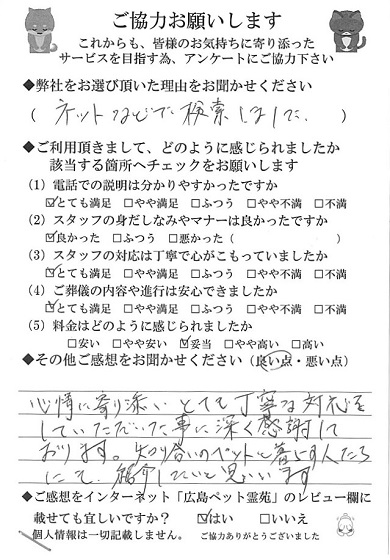 ご協力お願いします
これからも、皆様のお気持ちに寄り添った
サービスを目指す為、アンケートにご協力下さい
◆弊社をお選び頂いた理由をお聞かせください
( ネットなどで検索しました。 )
◆ご利用頂きまして、どのように感じられましたか
該当する箇所へチェックをお願いします
(1) 電話での説明は分かりやすかったですか
☑とても満足 □やや満足 □ふつう □やや不満 □不満
(2) スタッフの身だしなみやマナーは良かったですか
☑良かった □ふつう □悪かった ( )
(3) スタッフの対応は丁寧で心がこもっていましたか
☑とても満足 □やや満足 □ふつう □やや不満 □不満
(4) ご葬儀の内容や進行は安心できましたか
☑とても満足 □やや満足 □ふつう □やや不満 □不満
(5) 料金はどのように感じられましたか
□安い □やや安い ☑妥当 □やや高い □高い
◆その他ご感想をお聞かせください (良い点・悪い点)
心情に寄り添い とても丁寧な対応を
していただいた事に深く感謝して
おります。知り合いのペットと暮らす人たち
にて 紹介したいと思います
◆ご感想をインターネット「広島ペット霊苑」のレビュー欄に
載せても宜しいですか? ☑はい □いいえ
個人情報は一切記載しません。 ご協力ありがとうございました